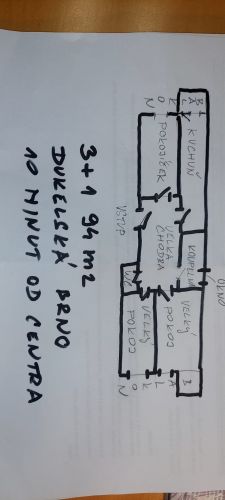 OKNO
BAL
K
KUCHYŇ
KOUPELNA
VELKÝ
POKOJ
B
A
L
K
O
N
POKOJÍČEK
VELKÁ
CHODBA
WC
VELKÝ
POKOJ
VSTUP
3+1 94 m2
DUKELSKÁ BRNO
10 MINUT OD CENTRA